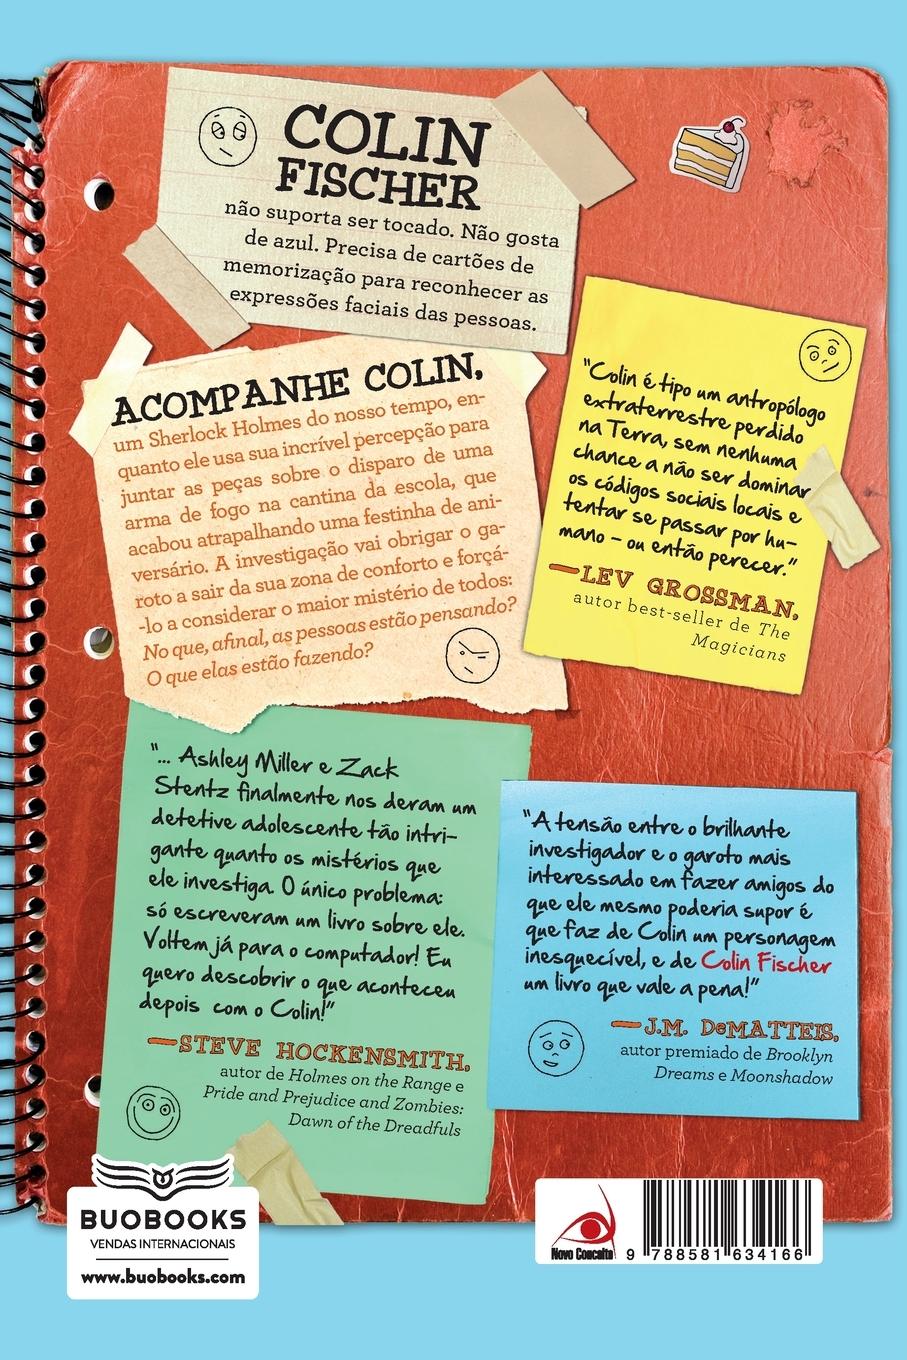 COLIN
FISCHER
não suporta ser tocado. Não gosta
de azul. Precisa de cartões de
memorização para reconhecer as
expressões faciais das pessoas.
ACOMPANHE COLIN,
um Sherlock Holmes do nosso tempo, en-
quanto ele usa sua incrível percepção para
juntar as peças sobre o disparo de uma
arma de fogo na cantina da escola, que
acabou atrapalhando uma festinha de ani-
versário. A investigação vai obrigar o ga-
roto a sair da sua zona de conforto e forçá-
-lo a considerar o maior mistério de todos:
No que, afinal, as pessoas estão pensando?
O que elas estão fazendo?
"Colin é tipo um antropólogo
extraterrestre perdido
na Terra, sem nenhuma
chance a não ser dominar
os códigos sociais locais e
tentar se passar por hu-
mano – ou então perecer."
—LEV GROSSMAN,
autor best-seller de The
Magicians
"... Ashley Miller e Zack
Stentz finalmente nos deram um
detetive adolescente tão intri-
gante quanto os mistérios que
ele investiga. O único problema:
só escreveram um livro sobre ele.
Voltem já para o computador! Eu
quero descobrir o que aconteceu
depois com o Colin!"
—STEVE HOCKENSMITH,
autor de Holmes on the Range e
Pride and Prejudice and Zombies:
Dawn of the Dreadfuls
"A tensão entre o brilhante
investigador e o garoto mais
interessado em fazer amigos do
que ele mesmo poderia supor é
que faz de Colin um personagem
inesquecível, e de Colin Fischer
um livro que vale a pena!"
—J.M. DeMATTEIS,
autor premiado de Brooklyn
Dreams e Moonshadow
BUOBOOKS
VENDAS INTERNACIONAIS
www.buobooks.com
Novo Conceito
9 788581 634166